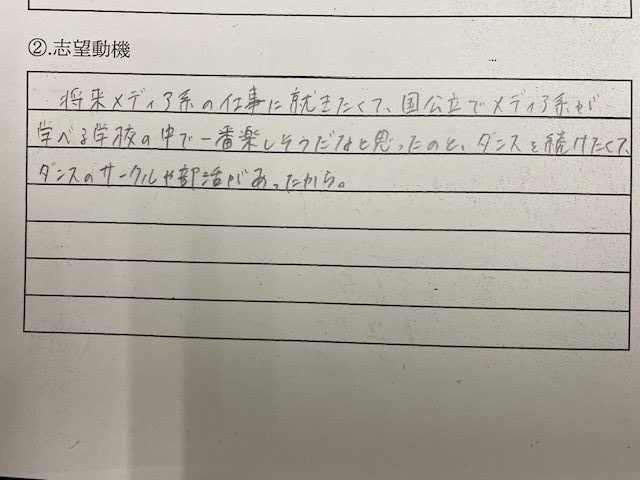 ②.志望動機
将来メディア系の仕事に就きたくて、国公立でメディア系が
学べる学校の中で一番楽しそうだなと思ったのと、ダンスを続けたくて、
ダンスのサークルや部活があったから。